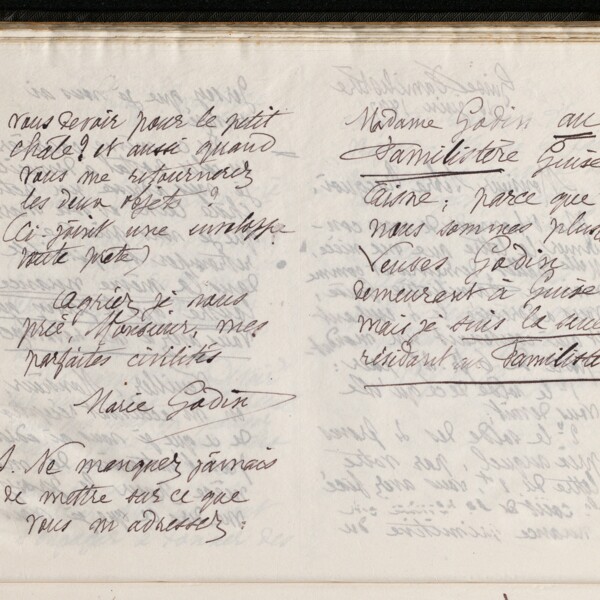 vous devoir pour le petit
châle? et aussi quand
vous me retournerez
les deux objets?
(Ci-joint une enveloppe
toute prête)
Agréez je vous
prie, Monsieur, mes
parfaites civilités
Marie Godin
S. Ne manquez jamais
de mettre sur ce que
vous m'adressez:
Madame Godin au
Familistère Guise
Aisne; parce que
nous sommes plus
Veuves Godin
demeurant à Guise
mais je suis la seule
résidant au Familist